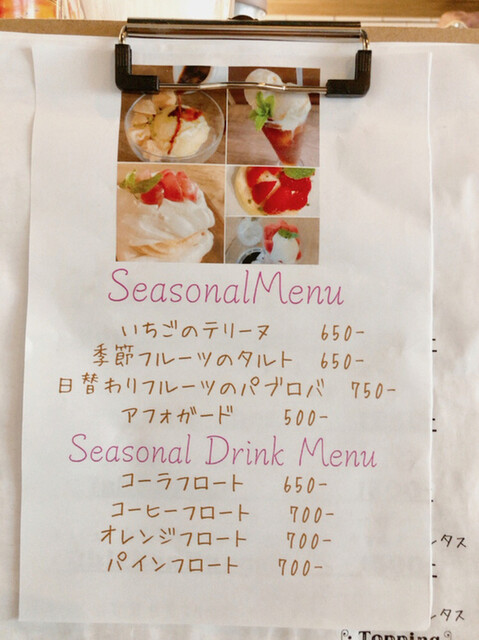 SeasonalMenu
いちごのテリーヌ 650-
季節フルーツのタルト 650-
日替わりフルーツのパブロバ 750-
アフォガード 500-
Seasonal Drink Menu
コーラフロート 650-
コーヒーフロート 700-
オレンジフロート 700-
パインフロート 700-
タス
タス
Topping